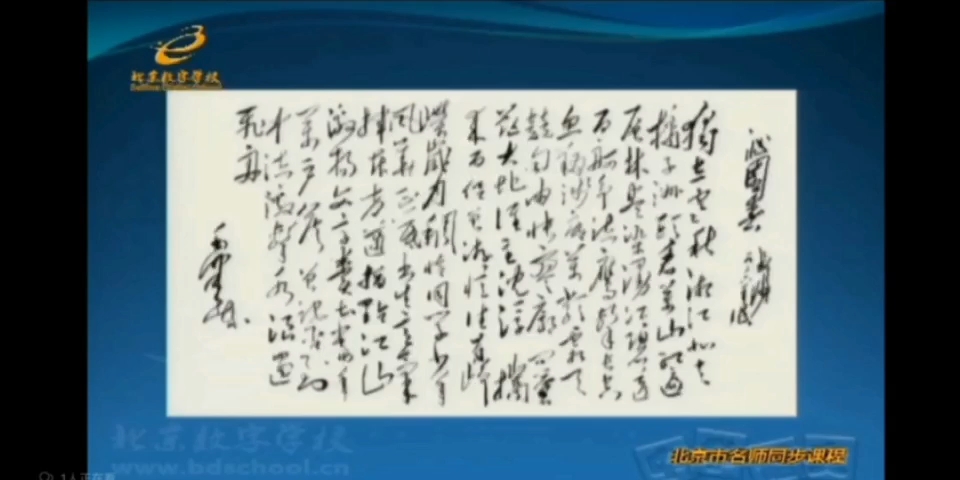 北京数字学校
沁園春 長沙
獨立寒秋湘江北去
橘子洲頭看萬山紅遍
层林尽染漫江碧透
百舸争流鹰击长空
鱼翔浅底萬类霜天
競自由怅寥廓
茫大地谁主沉浮 携
来百侣曾游忆往昔峥
嵘歲月稠恰同学少年
風華正茂书生意气
挥斥方遒指点江山
激扬文字粪土当年
萬户侯曾记否到
中流击水浪遏
飛舟
毛泽东
北京数字学校
www.bdschool.cn
北京市名师同步课程